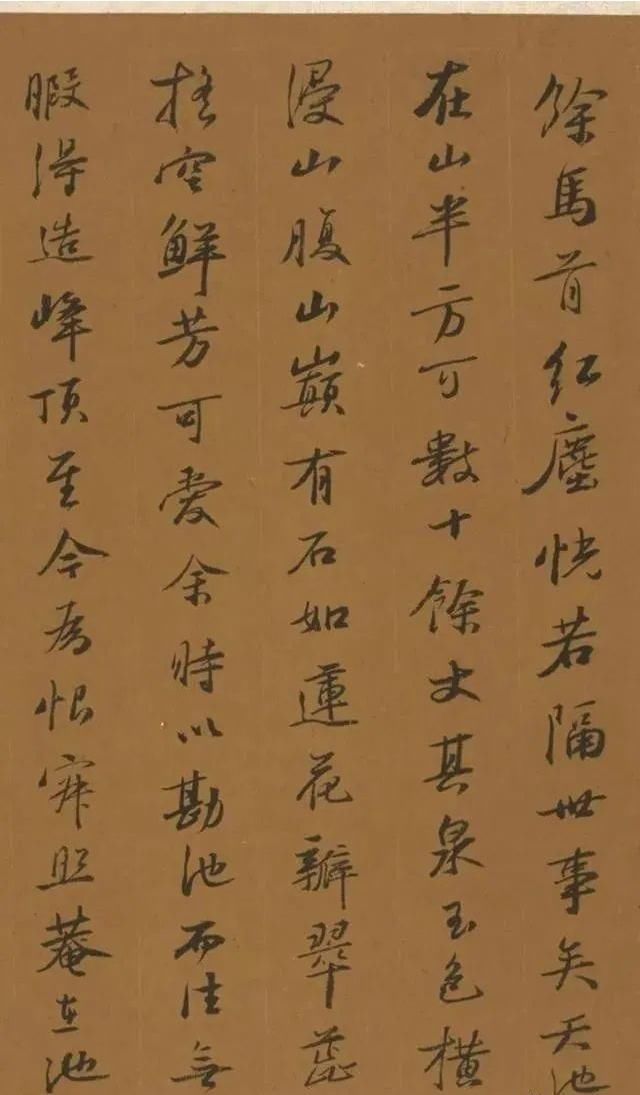 餘馬首紅塵恍若隔世事矣天池
在山半方可數十餘丈其泉玉色橫
浸山腹山巔有石如蓮花瓣翠蕊
摚空鮮芳可愛余時以勘池而往無
暇得造峰頂至今為恨寂照菴在池